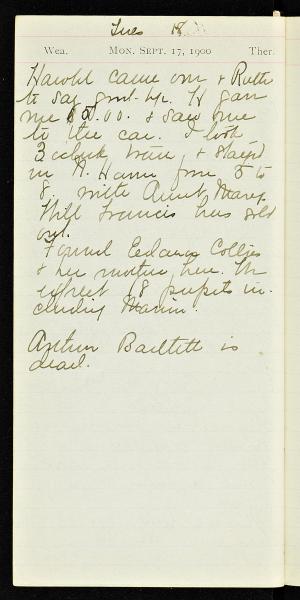 Tues 18
Wea. MON. SEPT. 17, 1900 Ther.
Harold came over & Ruth
to say good-bye. H gave
me $5.00. & saw me
to the car. I took
3 oclock train, & stayed
in N. Haven from 5 to
8. with Aunt Mary.
Will Francis has sold
out.
Found Collies
& her mother here. We
expect 18 pupils in-
cluding Marion.
Arthur Bartlett is
dead.